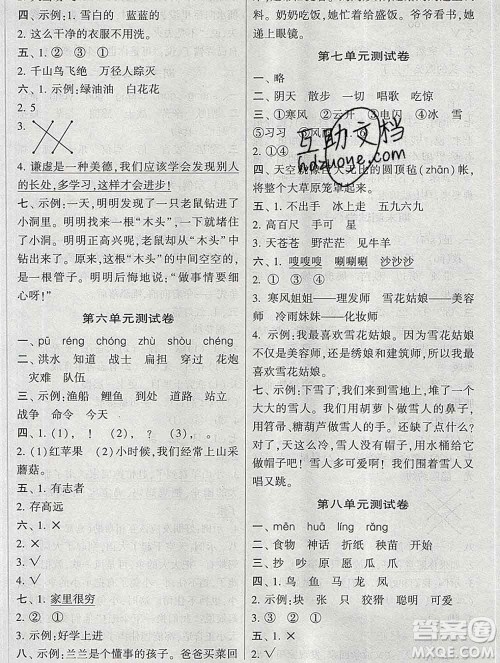 四、示例:1. 雪白的 蓝蓝的
2. 这么干净的衣服不用洗。
五、1. ③ ① ②
2. 千山鸟飞绝 万径人踪灭
六、1. 示例:绿油油 白花花
2. 5
3.
4. 谦虚是一种美德,我们应该学会发现别人
的长处,多学习,这样才会进步!
七、示例:一天,明明发现一只老鼠钻进了
小洞里。明明找来一根“木头”,堵住了
这个小洞。可是,老鼠却从“木头”中
钻出来了。原来“木头”的中间空空的,
是一根管子。明明后悔地说:“做事情要细
心呀!”
第六单元测试卷
一、pū réng chóng zhù shòu chéng
二、洪水 知道 战士 扁担 穿过 花炮
灾难 队伍
三、示例:渔船 鲤鱼 到处 道路 站立
战争 命令 今天
四、1. (1)! (2)? (3), 。
2. (1)红苹果 (2)小时候,我们经常上山采
蘑菇。
五、1. 有志者
2. 存高远
六、1. ×
2. ×
3. √
4. √
七、1. 家里很穷
2. ② ①
3. 示例:好学上进
八、示例:兰兰是个懂事的孩子。爸爸买菜回
料。奶奶吃饭,她忙着盛饭。爷爷看书,她
递上眼镜。
第七单元测试卷
一、略
二、阴天 散步 一切 唱歌 吃惊
三、1. ①寒风 ②云开 ③ ④冰 雪
⑤习习
2. ① ② ③
四、天空就 的圆顶毡(zhān)帐,
将整个大草原笼罩起来。
五、1. 不出手 冰上走 五九六九
2. 高百尺 手可 星
3. 天苍苍 野茫茫 见牛羊
六、1. 嗖嗖嗖 唰唰唰 沙沙沙
2. ③ ① ②
3. 寒风姐姐——理发师 雪花姑娘——美容
师 冷雨妹妹——化妆师
4. 示例:我最喜欢雪花姑娘。因为雪花姑娘
不仅是杰出的绣师和建筑师,所以我最喜
欢雪花姑娘。
七、示例:我们来到雪地上,在雪地里堆了一个
大大的雪人。我们用胡萝卜做雪人的鼻子,
用葡萄做雪人的眼睛,用围巾做雪人的嘴
巴。雪人怎么可以没有帽子呢?用水桶给它
做个帽子吧!我们看着可爱的雪人高兴得
又唱又跳。
第八单元测试卷
一、mēn huā líng rǎng
二、食物 神话 折纸 秩苗 开始
三、抄 吵 愿 愿 瓜 爪
四、1. 鸟 鱼 马 龙 凤
2. 示例:块 张 只 狡猾 聪明 可爱
五、1. ×
2. √
3. √
六、1. ② ① ①
互助文档
hdzuoye.com
答案圈
MXQE.COM